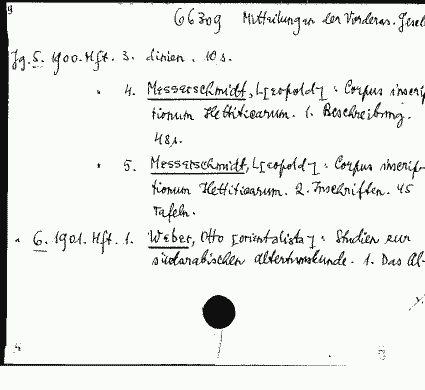 66309 Mitteilungen der Vorderas. Gesell
Jg. 5. 1900. Hft. 3. dinien. 10 s.
" 4. Messerschmidt, L[eopold]: Corpus inscrip
tionum Hettiticarum. 1. Beschreibung.
48 s.
" 5. Messerschmidt, L[eopold]: Corpus inscrip-
tionum Hettiticarum. 2. Inschriften. 45
Tafeln.
" 6. 1901. Hft. 1. Weber, Otto [orientalista]: Studien zur
südarabischen Altertumskunde. 1. Das Al-